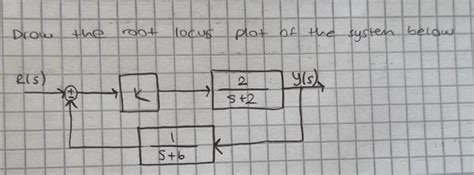 Draw the root locus plot of the system below
R(s)
±
K
2
s+2
Y(s)
1
s+6